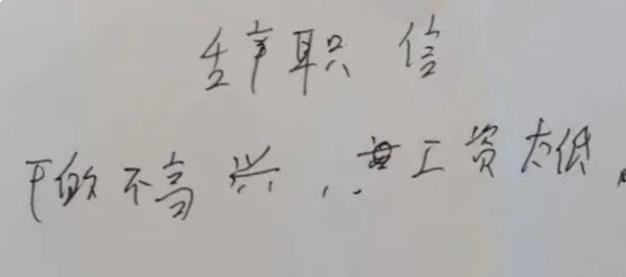 辞职信
干的不高兴，工资太低。